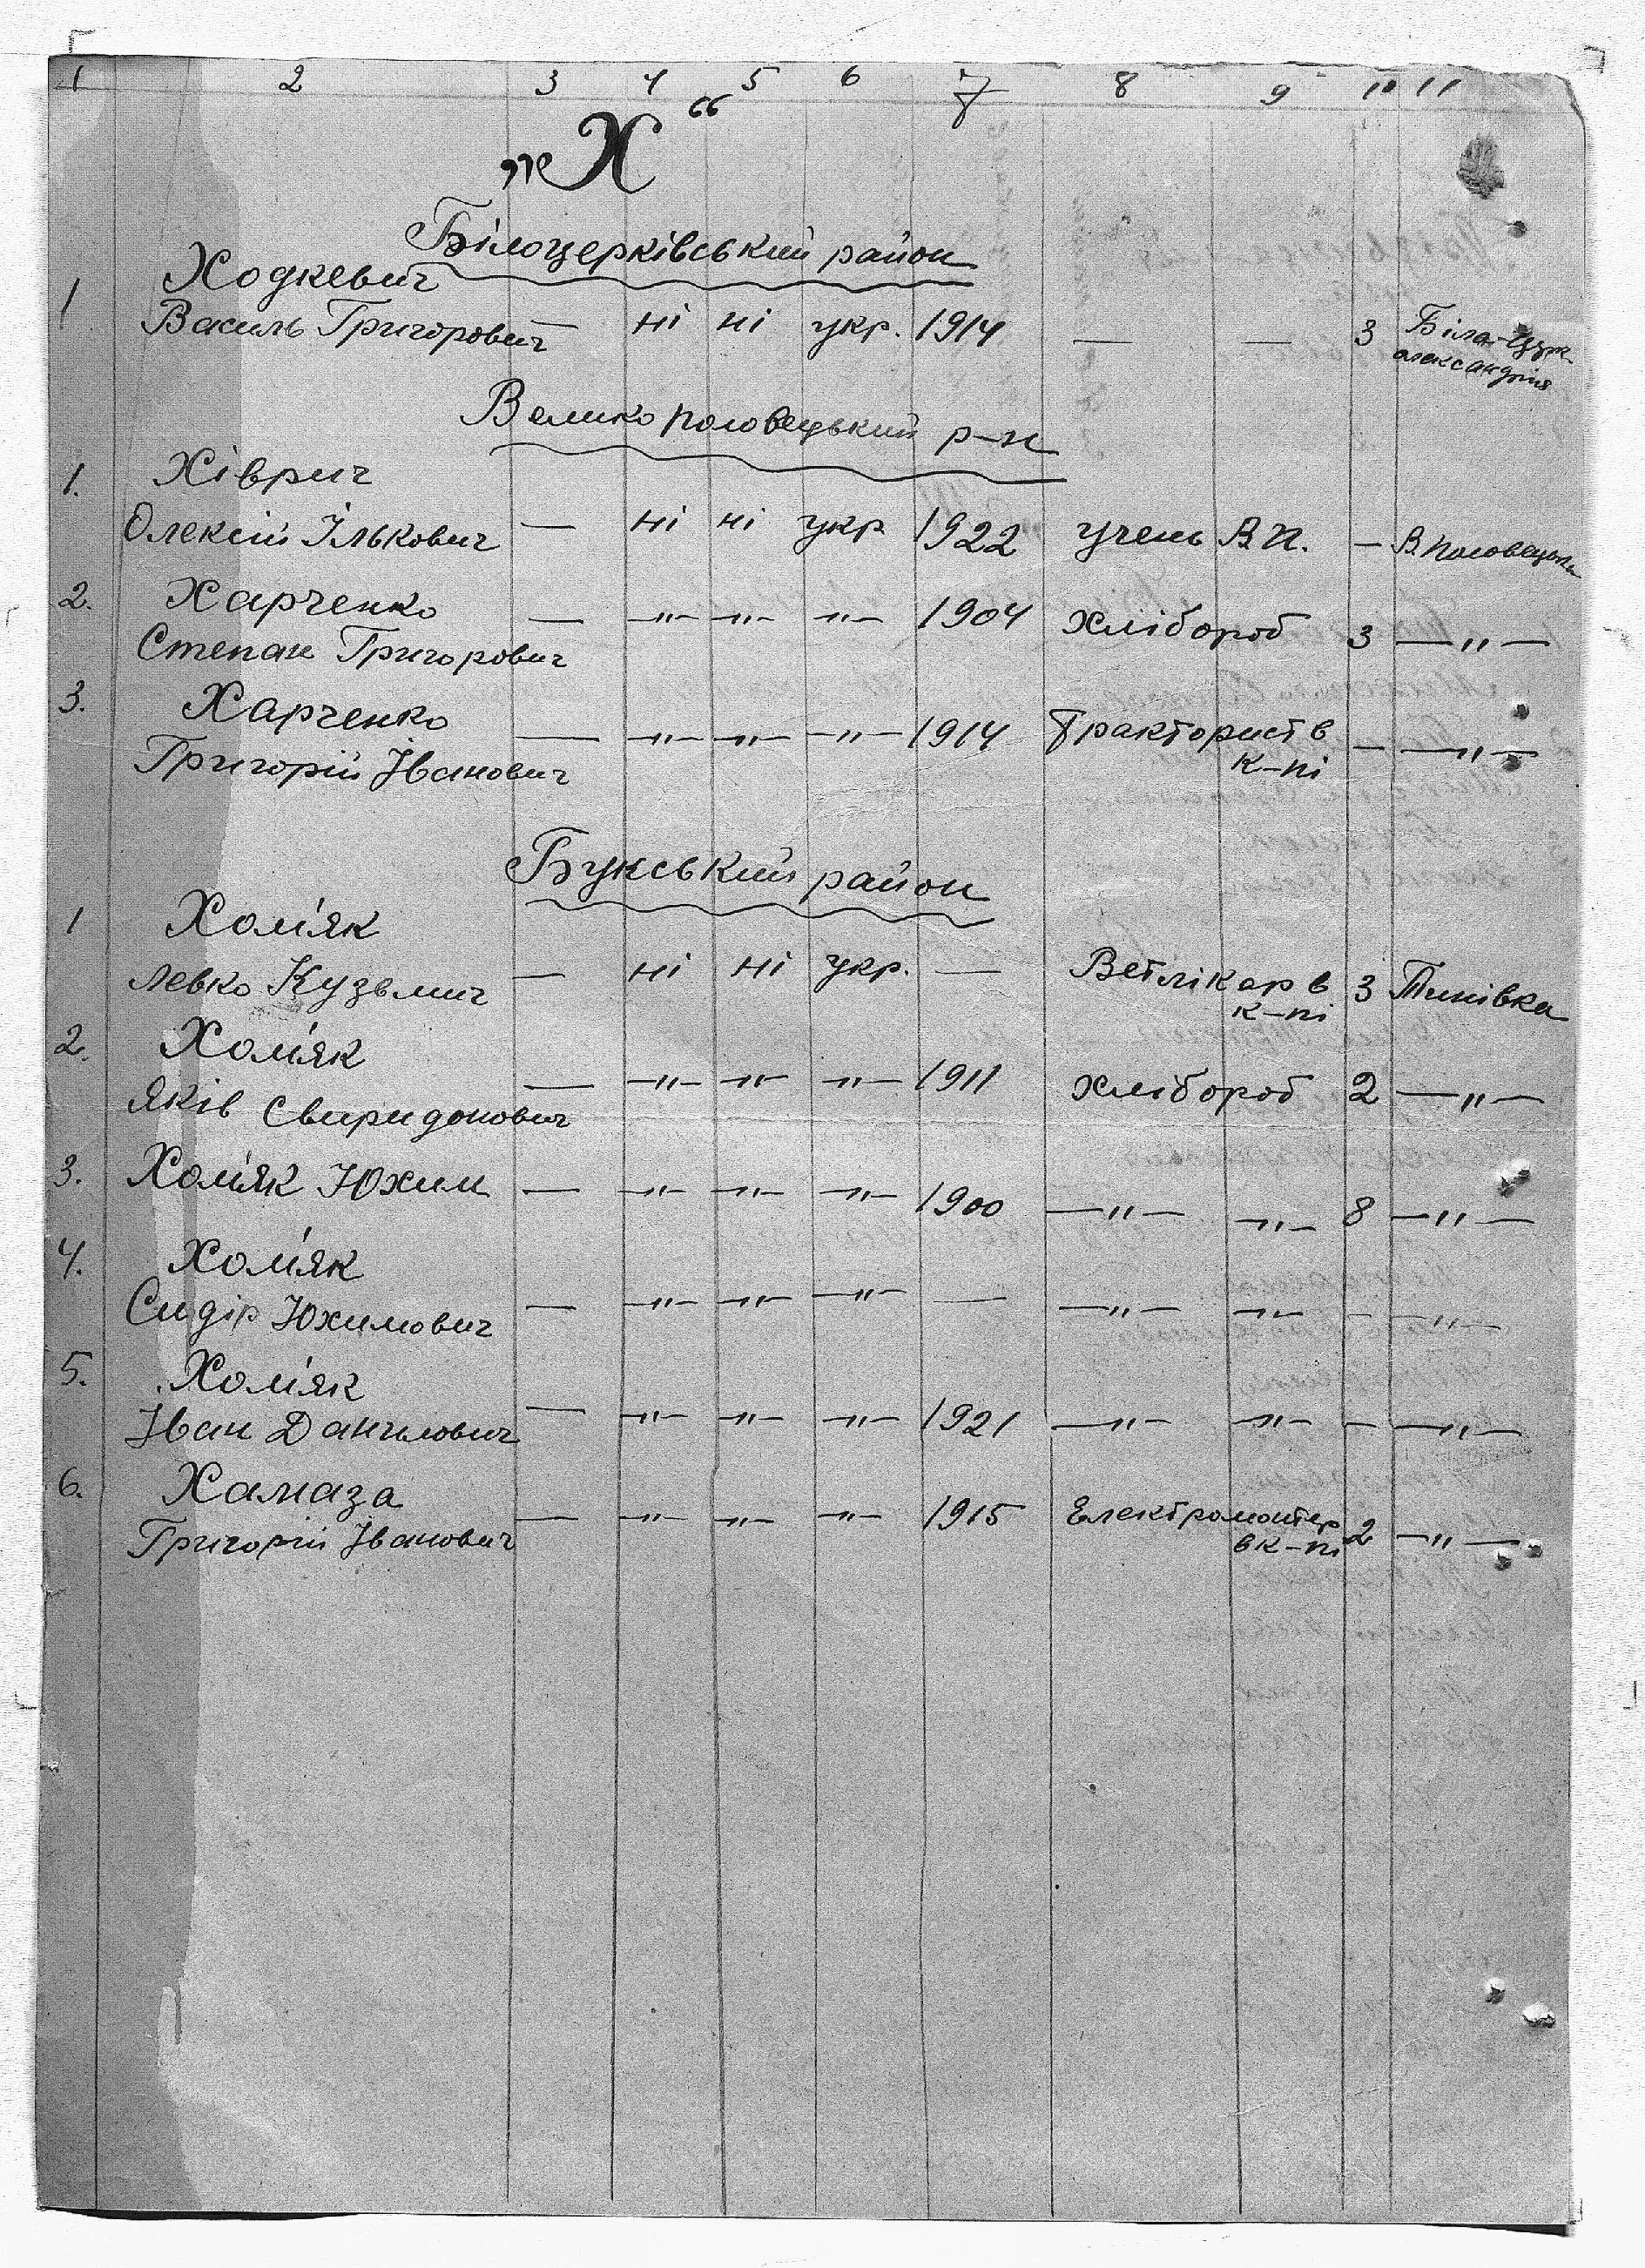 1 2 3 4 5 6 7 8 9 10 11
„Х“
Білоцерківський район
1 Ходкевич
Василь Григорович — ні ні укр. 1914 — — 3 Біла-Церк.
Александрія
Велико половецький р-н
1. Хіврич
Олексій Ількович — ні ні укр 1922 учень В.П. — В. Половецьке
2. Харченко
Степан Григорович — —„— —„— —„— 1904 Хлібороб 3 —„—
3. Харченко
Григорій Іванович — —„— —„— —„— 1914 Тракторист в
к-пі — —„—
Букський район
1 Хом'як
Левко Кузьмич — ні ні укр. — Ветлікар в 3 Тинівка
к-пі
2. Хом'як
Яків Свиридонович — —„— —„— —„— 1911 Хлібороб 2 —„—
3. Хом'як Юхим — —„— —„— —„— 1900 —„— —„— 8 —„—
4. Хом'як
Сидір Юхимович — —„— —„— —„— — —„— —„— — —„—
5. Хом'як
Іван Данилович — —„— —„— —„— 1921 —„— —„— — —„—
6. Хамаза
Григорій Іванович — —„— —„— —„— 1915 Електромонтер
в к-пі 2 —„—